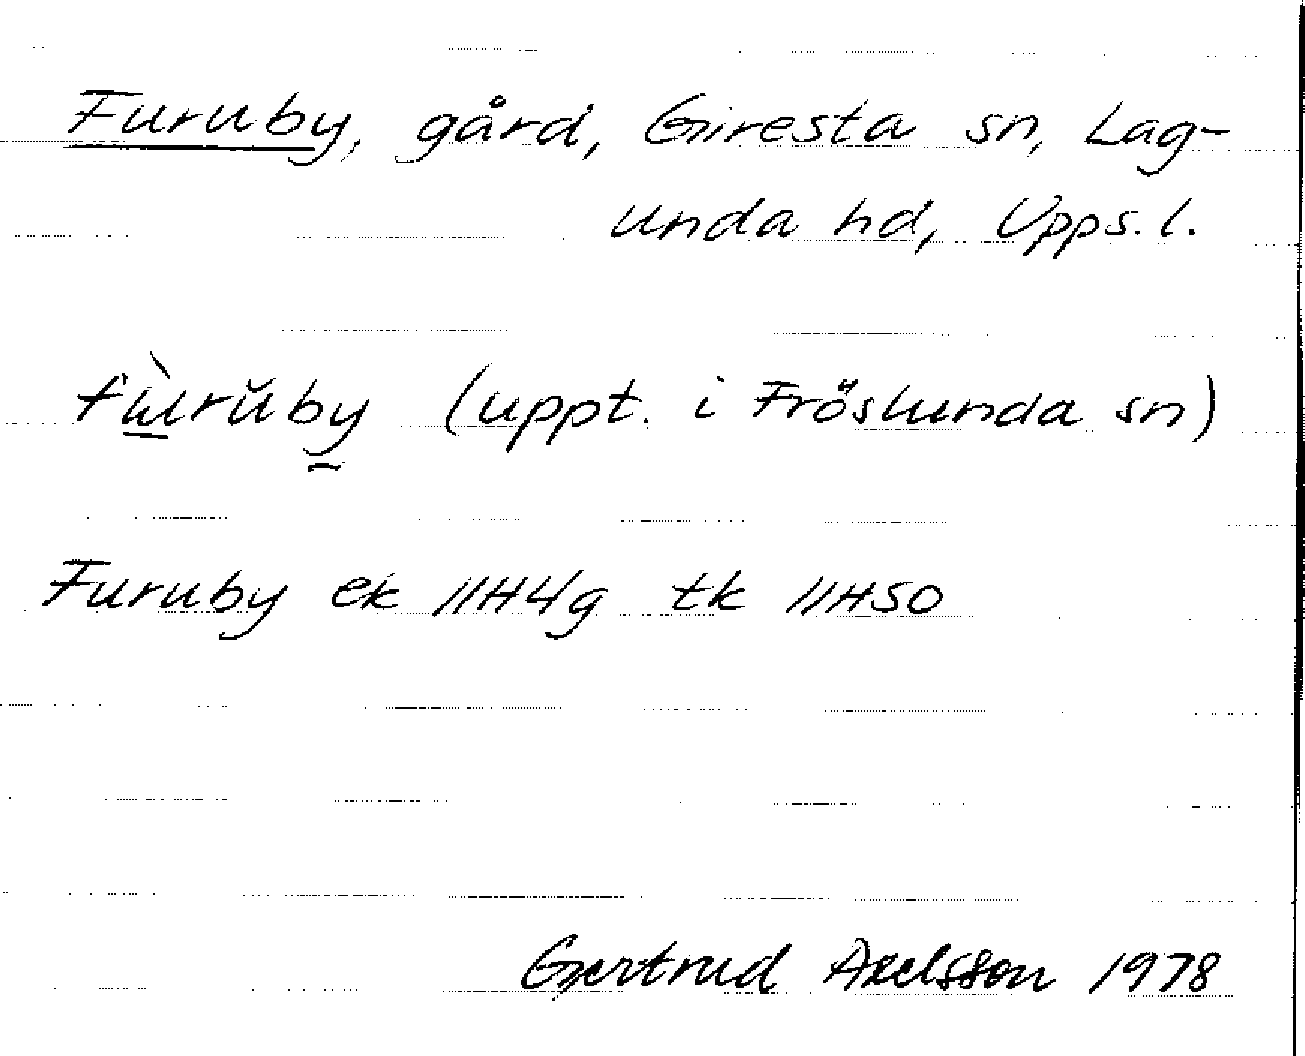 Furuby, gård, Giresta sn, Lag-
unda hd, Upps. l.
fù̲rŭby̲ (uppt. i Fröslunda sn)
Furuby ek 11H4g tk 11HSO
Gertrud Axelsson 1978